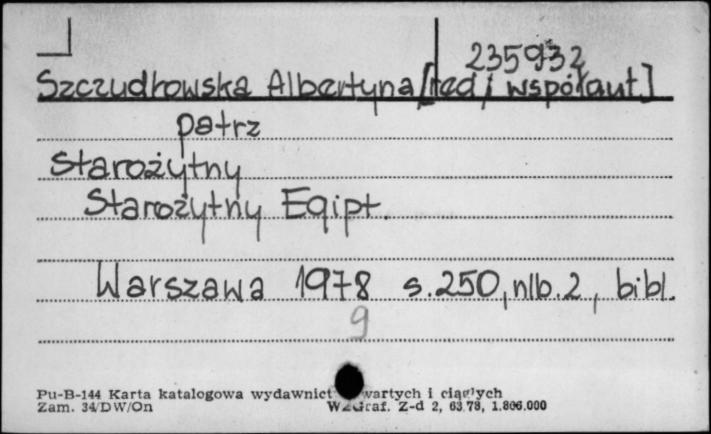 235932
Szczudłowska Albertyna [red i współaut.]
patrz
Starożytny
Starożytny Egipt.
Warszawa 1978 s.250, nlb.2, bibl.
9
Pu-B-144 Karta katalogowa wydawnict wartych i ciągłych
Zam. 34/DW/On WZGraf. Z-d 2, 63.78, 1.806.000